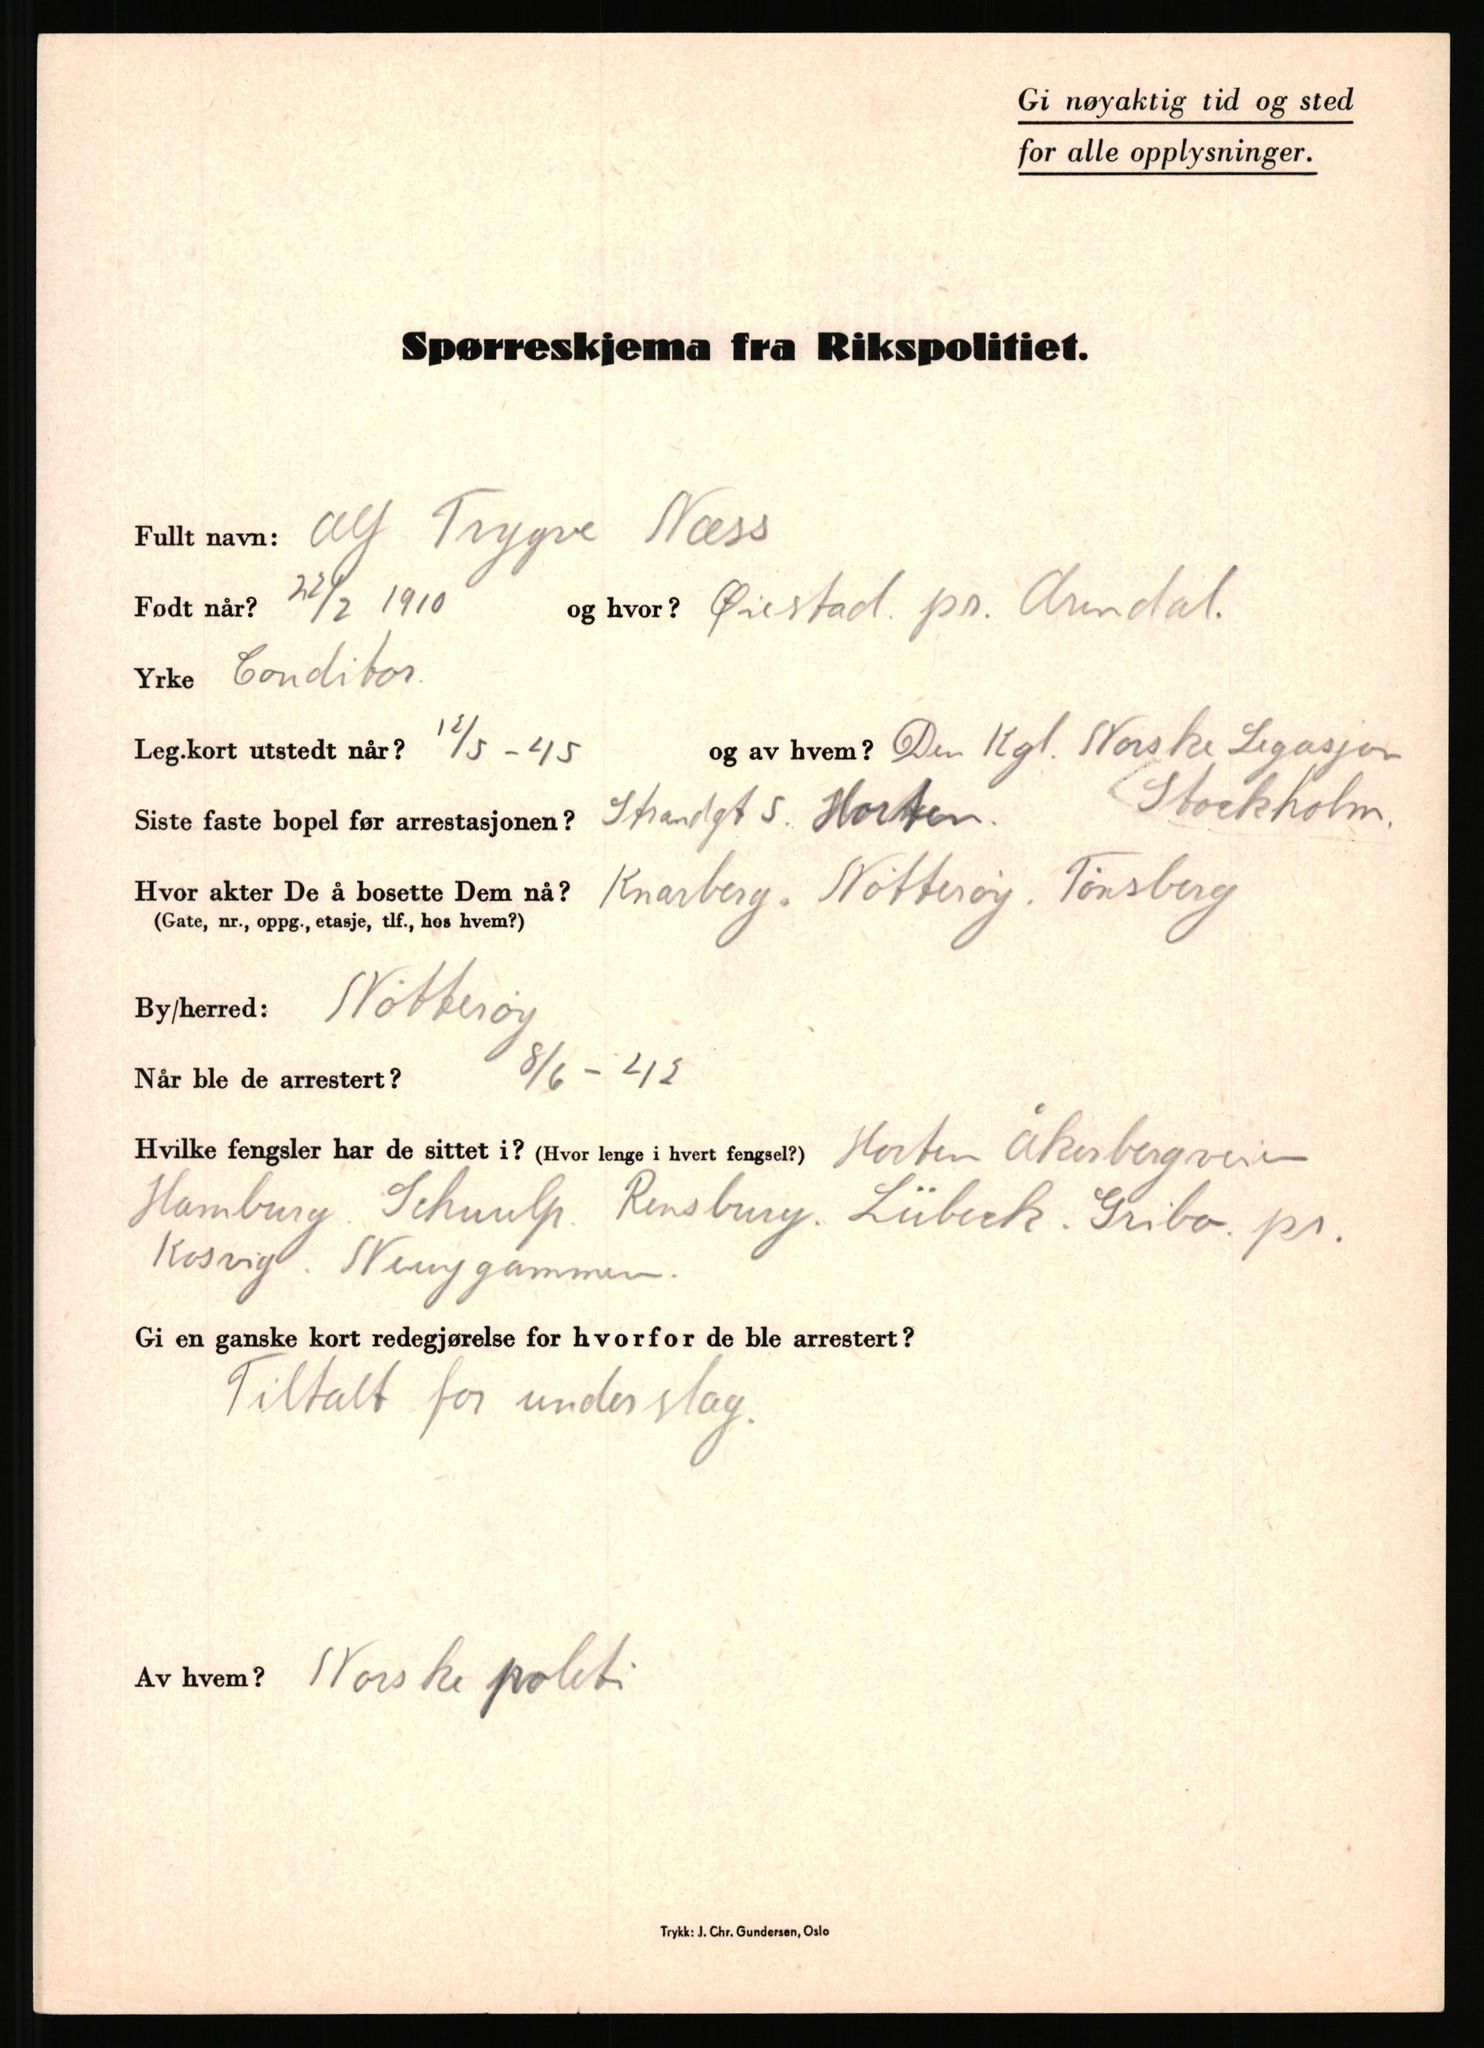 Gi nøyaktig tid og sted
for alle opplysninger.
Spørreskjema fra Rikspolitiet.
Fullt navn: Alf Trygve Næss
Født når? 22/2 1910 og hvor? Øiestad. pr. Arendal.
Yrke Conditor.
Leg.kort utstedt når? 12/5 - 45 og av hvem? Den Kgl. Norske Legasjon
Stockholm.
Siste faste bopel før arrestasjonen? Strandgt 5. Horten.
Hvor akter De å bosette Dem nå? Knarberg. Nötteröy. Tönsberg
(Gate, nr., oppg., etasje, tlf., hos hvem?)
By/herred: Nötteröy
Når ble de arrestert? 8/6 - 42
Hvilke fengsler har de sittet i? (Hvor lenge i hvert fengsel?) Horten Åkerbergveien
Hamburg. Rensburg. Lübeck. Gribo. pr.
Kosvig.
Gi en ganske kort redegjørelse for hvorfor de ble arrestert?
Tiltalt for underslag.
Av hvem? Norske politi
Trykk: J. Chr. Gundersen, Oslo